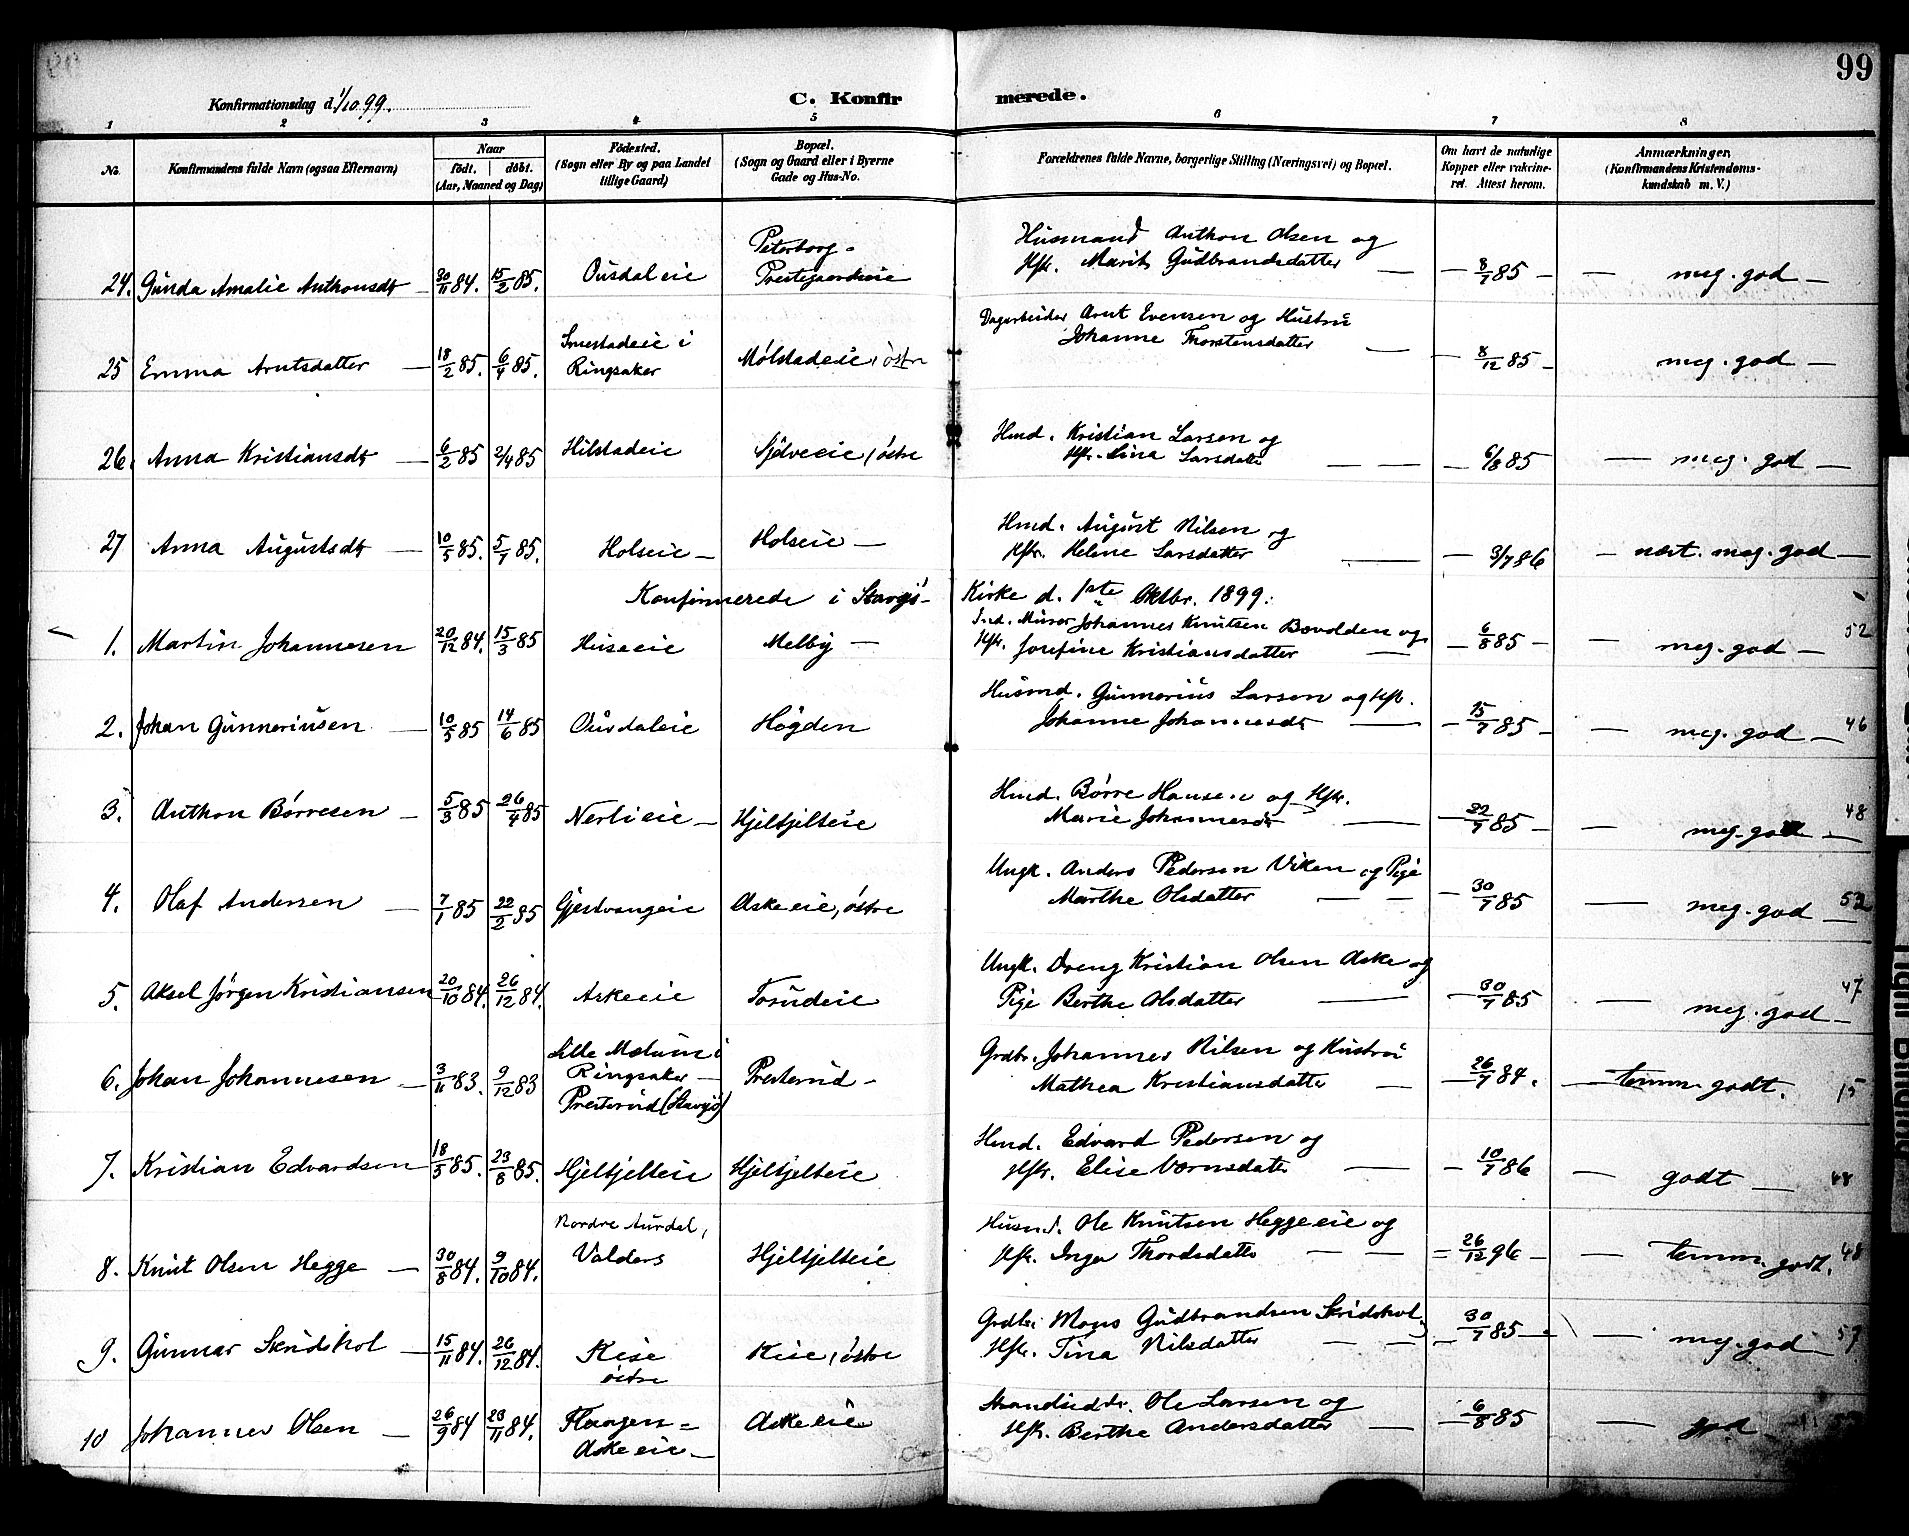 99
Konfirmationsdag d. 1/10 99.
C. Konfirmerede.
1 2 3 4 5 6 7 8
No. Konfirmandens fulde Navn (ogsaa Efternavn) Naar födt. döbt. (Aar, Maaned og Dag) Födested. (Sogn eller By og paa Landet tillige Gaard) Bopæl. (Sogn og Gaard eller i Byerne Gade og Hus-No. Forældrenes fulde Navne, borgerlige Stilling (Næringsvei) og Bopæl. Om havt de naturlige Kopper eller vakcineret. Attest herom. Anmærkninger, (Konfirmandens Kristendomskundskab m. V.)
24. Gunda Amalie Anthonsdt — 30/11 84. 15/2 85. Ousdaleie Peterborg - Prestegaardseie Husmand Anthon Olsen og Hstr. Marit Gudbrandsdatter — 8/7 85 — meg. god —
25 Emma Arntsdatter — 18/2 85. 6/4 85. Smestadeie i Ringsaker Mølstadeie, østre Dagarbeider Arnt Evensen og Hustru Johanne Thorstensdatter — 8/12 85 — meg. god —
26. Anna Kristiansdt — 6/2 85 2/4 85 Hilstadeie Sjølveeie, østre Hmd. Kristian Larsen og Hstr. Lina Larsdatt — 6/8 85 — meg. god —
27 Anna Augustsdt — 10/5 85. 5/7 85. Holseie — Holseie — Hmd. August Nilsen og Hstr. Helene Larsdatter — 3/7 86 — næst. meg. god —
Konfirmerede i Stavsjø Kirke d. 1ste Oktbr. 1899:
1. Martin Johannesen 20/12 84. 15/3 85 Huseeie Melby — Ind. Murer Johannes Knutsen Bøvolden og Hstr. Josefine Kristiansdatter — 6/8 85 — meg. god — 52
2. Johan Gunneriusen — 10/5 85 14/6 85 Ousdaleie Høgden Husmd. Gunnerius Larsen og Hst. Johanne Johannesdt — 15/7 85 — meg. god — 46
3. Anthon Børresen — 5/3 85 26/4 85 Nerlieie — Hjeltjelteie Hmd. Børre Hansen og Hstr. Marie Johannesdt — 22/7 85 — meg. god — 48
4. Olaf Andersen — 7/1 85 22/2 85 Gjestvangeie Askeeie, østre Ungk. Anders Pedersen Viken og Pige Marthe Olsdatter — 30/7 85 — meg. god — 52
5. Aksel Jørgen Kristiansen 20/10 84. 26/12 84. Askeeie Torudeie Ungk. Dreng Kristian Olsen Aske og Pige Berthe Olsdatter — 30/7 85 — meg. god — 47
6. Johan Johannesen — 3/11 83. 9/12 83 Lille Mælum i Ringsaker — Presterud (Stavsjø) Presterud — Grdbr. Johannes Nilsen og Hustru Mathea Kristiansdatte — 26/7 84. — temm. godt. 15
7. Kristian Edvardsen 18/5 85. 23/8 85. Hjeltjelteie Hjeltjelteie Hmd. Edvard Pedersen og Hstr. Elise Værnsdatte — 10/7 86 — godt — 48
8. Knut Olsen Hegge — 30/8 84. 9/10 84. Nordre Aurdal, Valders Hjeltjelteie Husmd. Ole Knutsen Heggeeie og Hstr. Inga Thordsdatte — 26/12 96 — temm. godt. 48
9. Gunnar Skridshol — 15/11 84. 26/12 84. Kise østre Kise, østre Grdbr. Mons Gudbrandsen Skridshol, Hstr. Tina Nilsdatter — 30/7 85 — meg. god — 57
10 Johannes Olsen — 26/9 84 23/11 84. Flaagen = Askeeie — Askeeie Strandsidder. Ole Larsen og Hstr. Berthe Andersdatter — 6/8 85 — god —